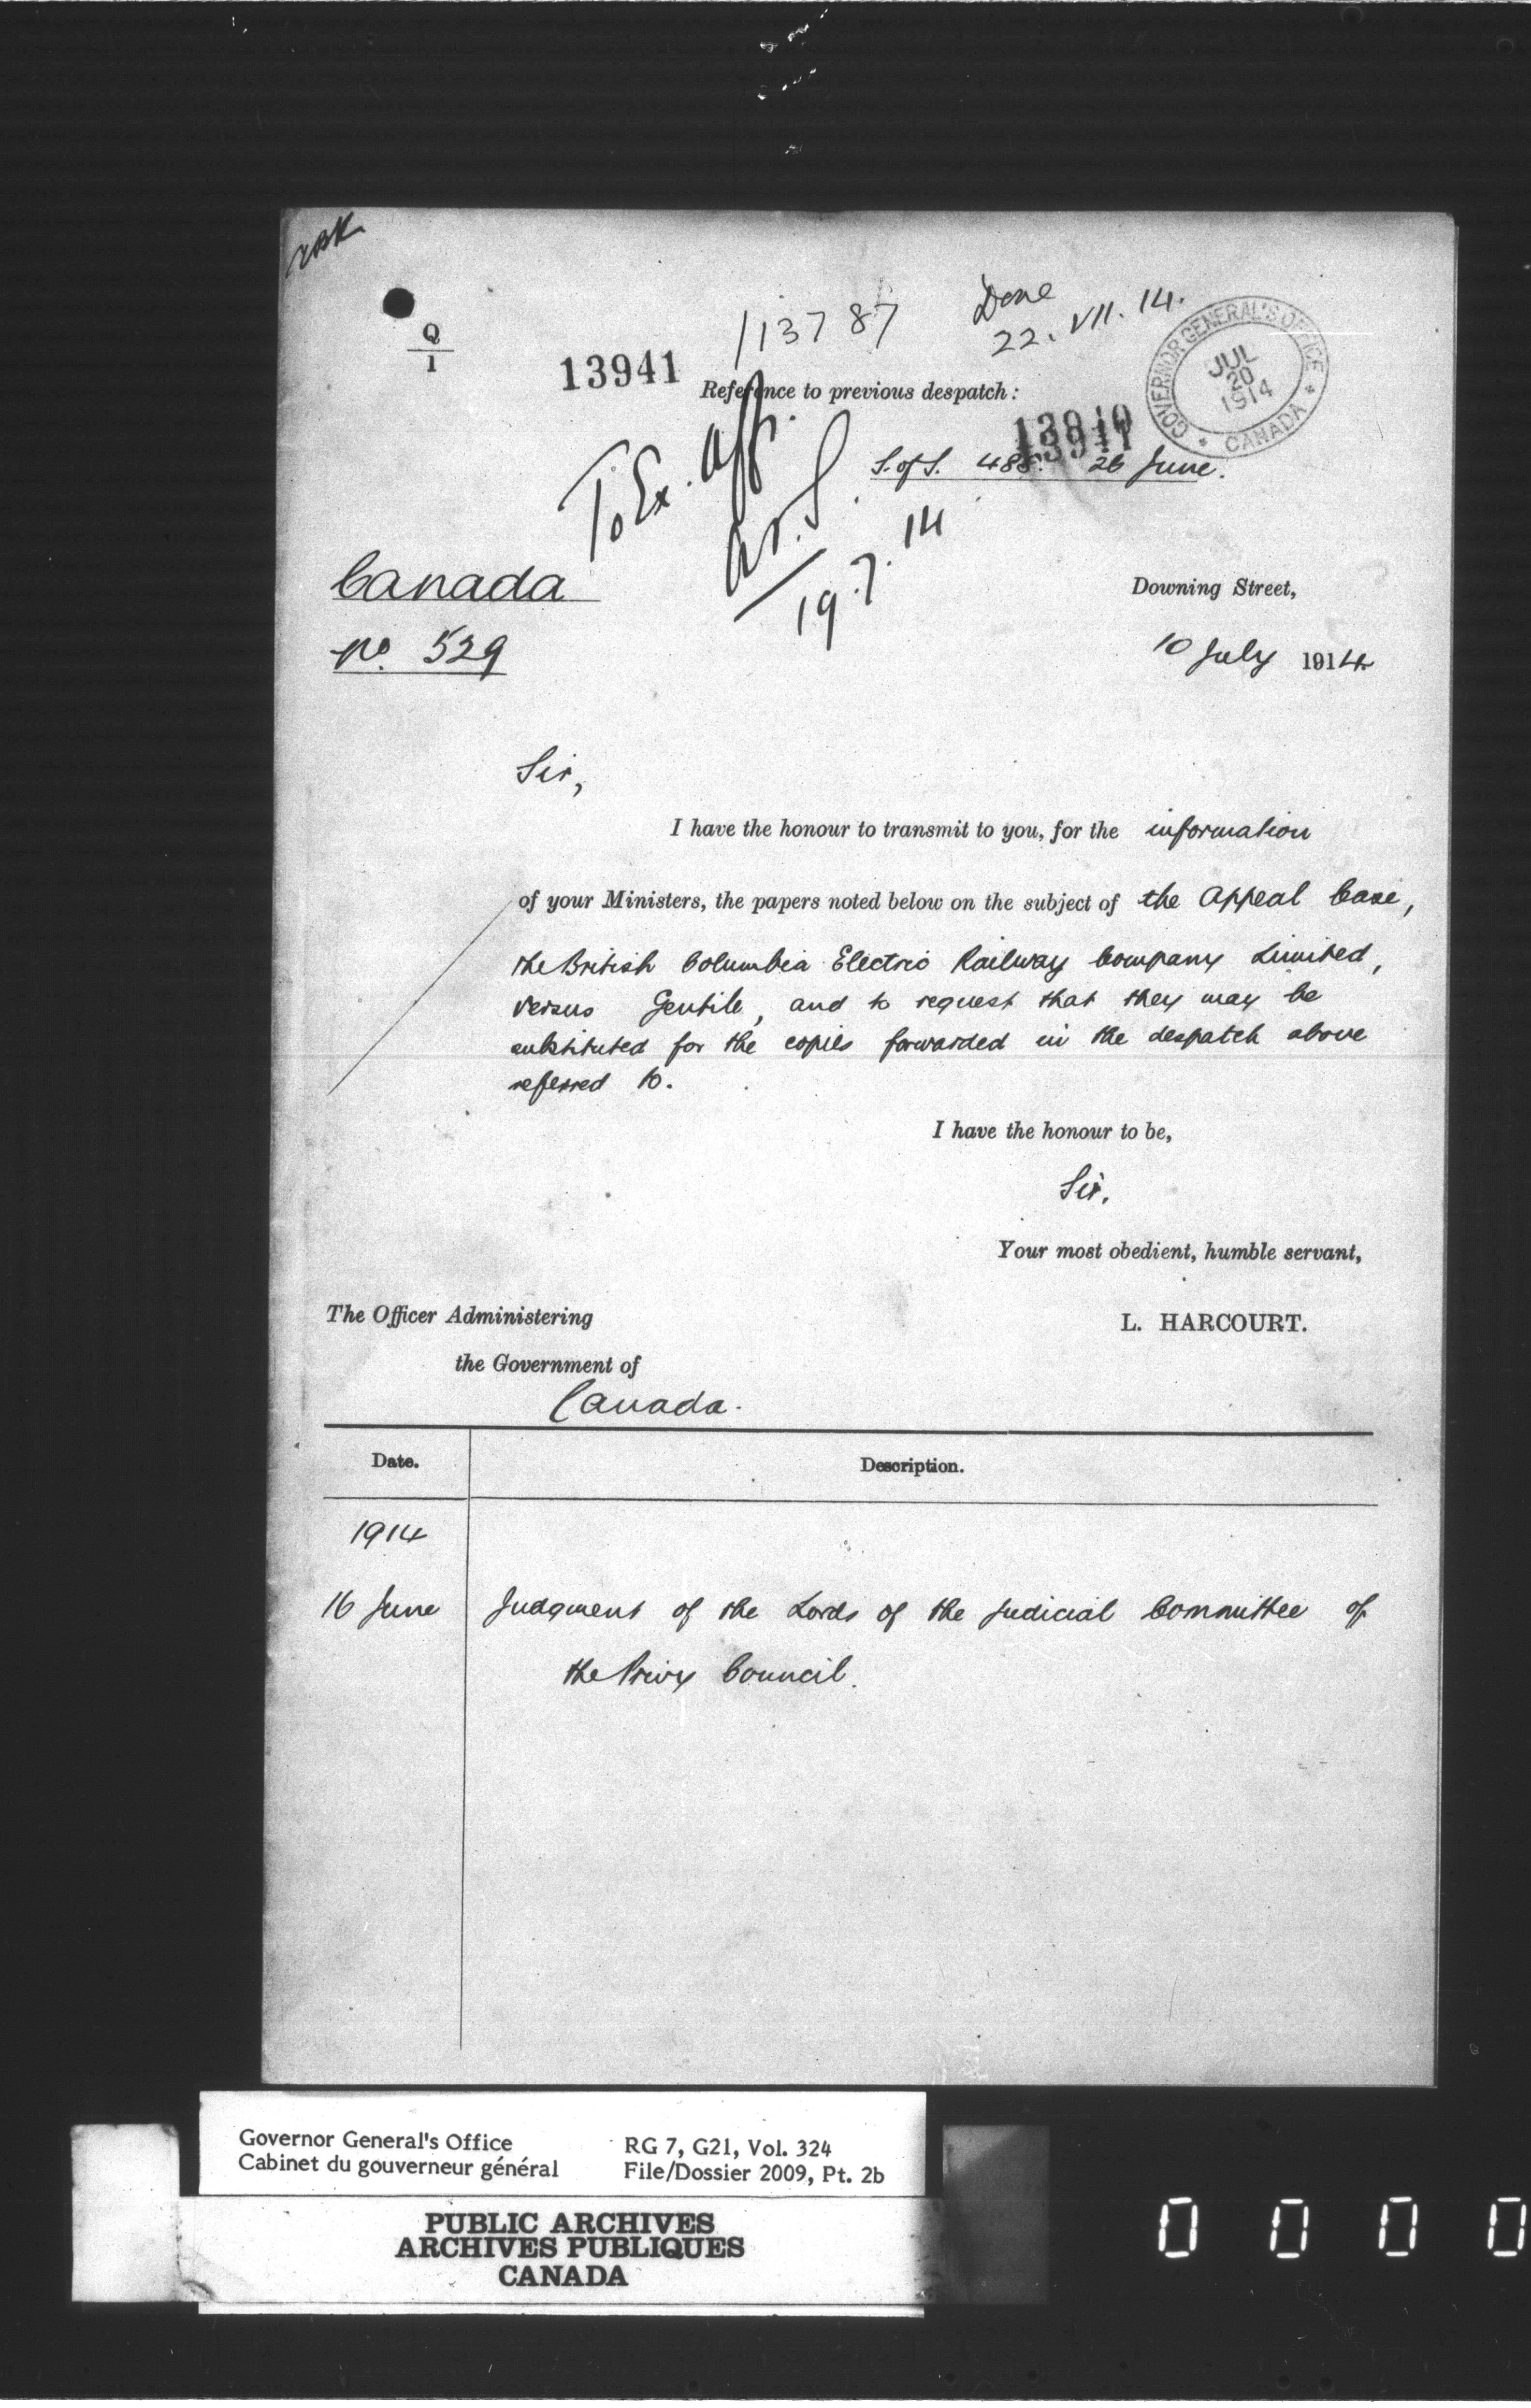 Q
1
13941
/13787
Done
22. VII. 14.
GOVERNOR GENERAL'S OFFICE
JUL
20
1914
* CANADA *
Reference to previous despatch:
S. of S. 26 June.
To Ex. Aff.
19.7.14
Canada
No. 529
Downing Street,
10 July 1914
Sir,
I have the honour to transmit to you, for the information
of your Ministers, the papers noted below on the subject of the Appeal Case,
the British Columbia Electric Railway Company Limited,
versus Gentile, and to request that they may be
substituted for the copies forwarded in the despatch above
referred to.
I have the honour to be,
Sir,
Your most obedient, humble servant,
L. HARCOURT.
The Officer Administering
the Government of
Canada.
Date. Description.
1914
16 June Judgment of the Lords of the Judicial Committee of
the Privy Council.
Governor General's Office RG 7, G21, Vol. 324
Cabinet du gouverneur général File/Dossier 2009, Pt. 2b
PUBLIC ARCHIVES
ARCHIVES PUBLIQUES
CANADA
0 0 0 0